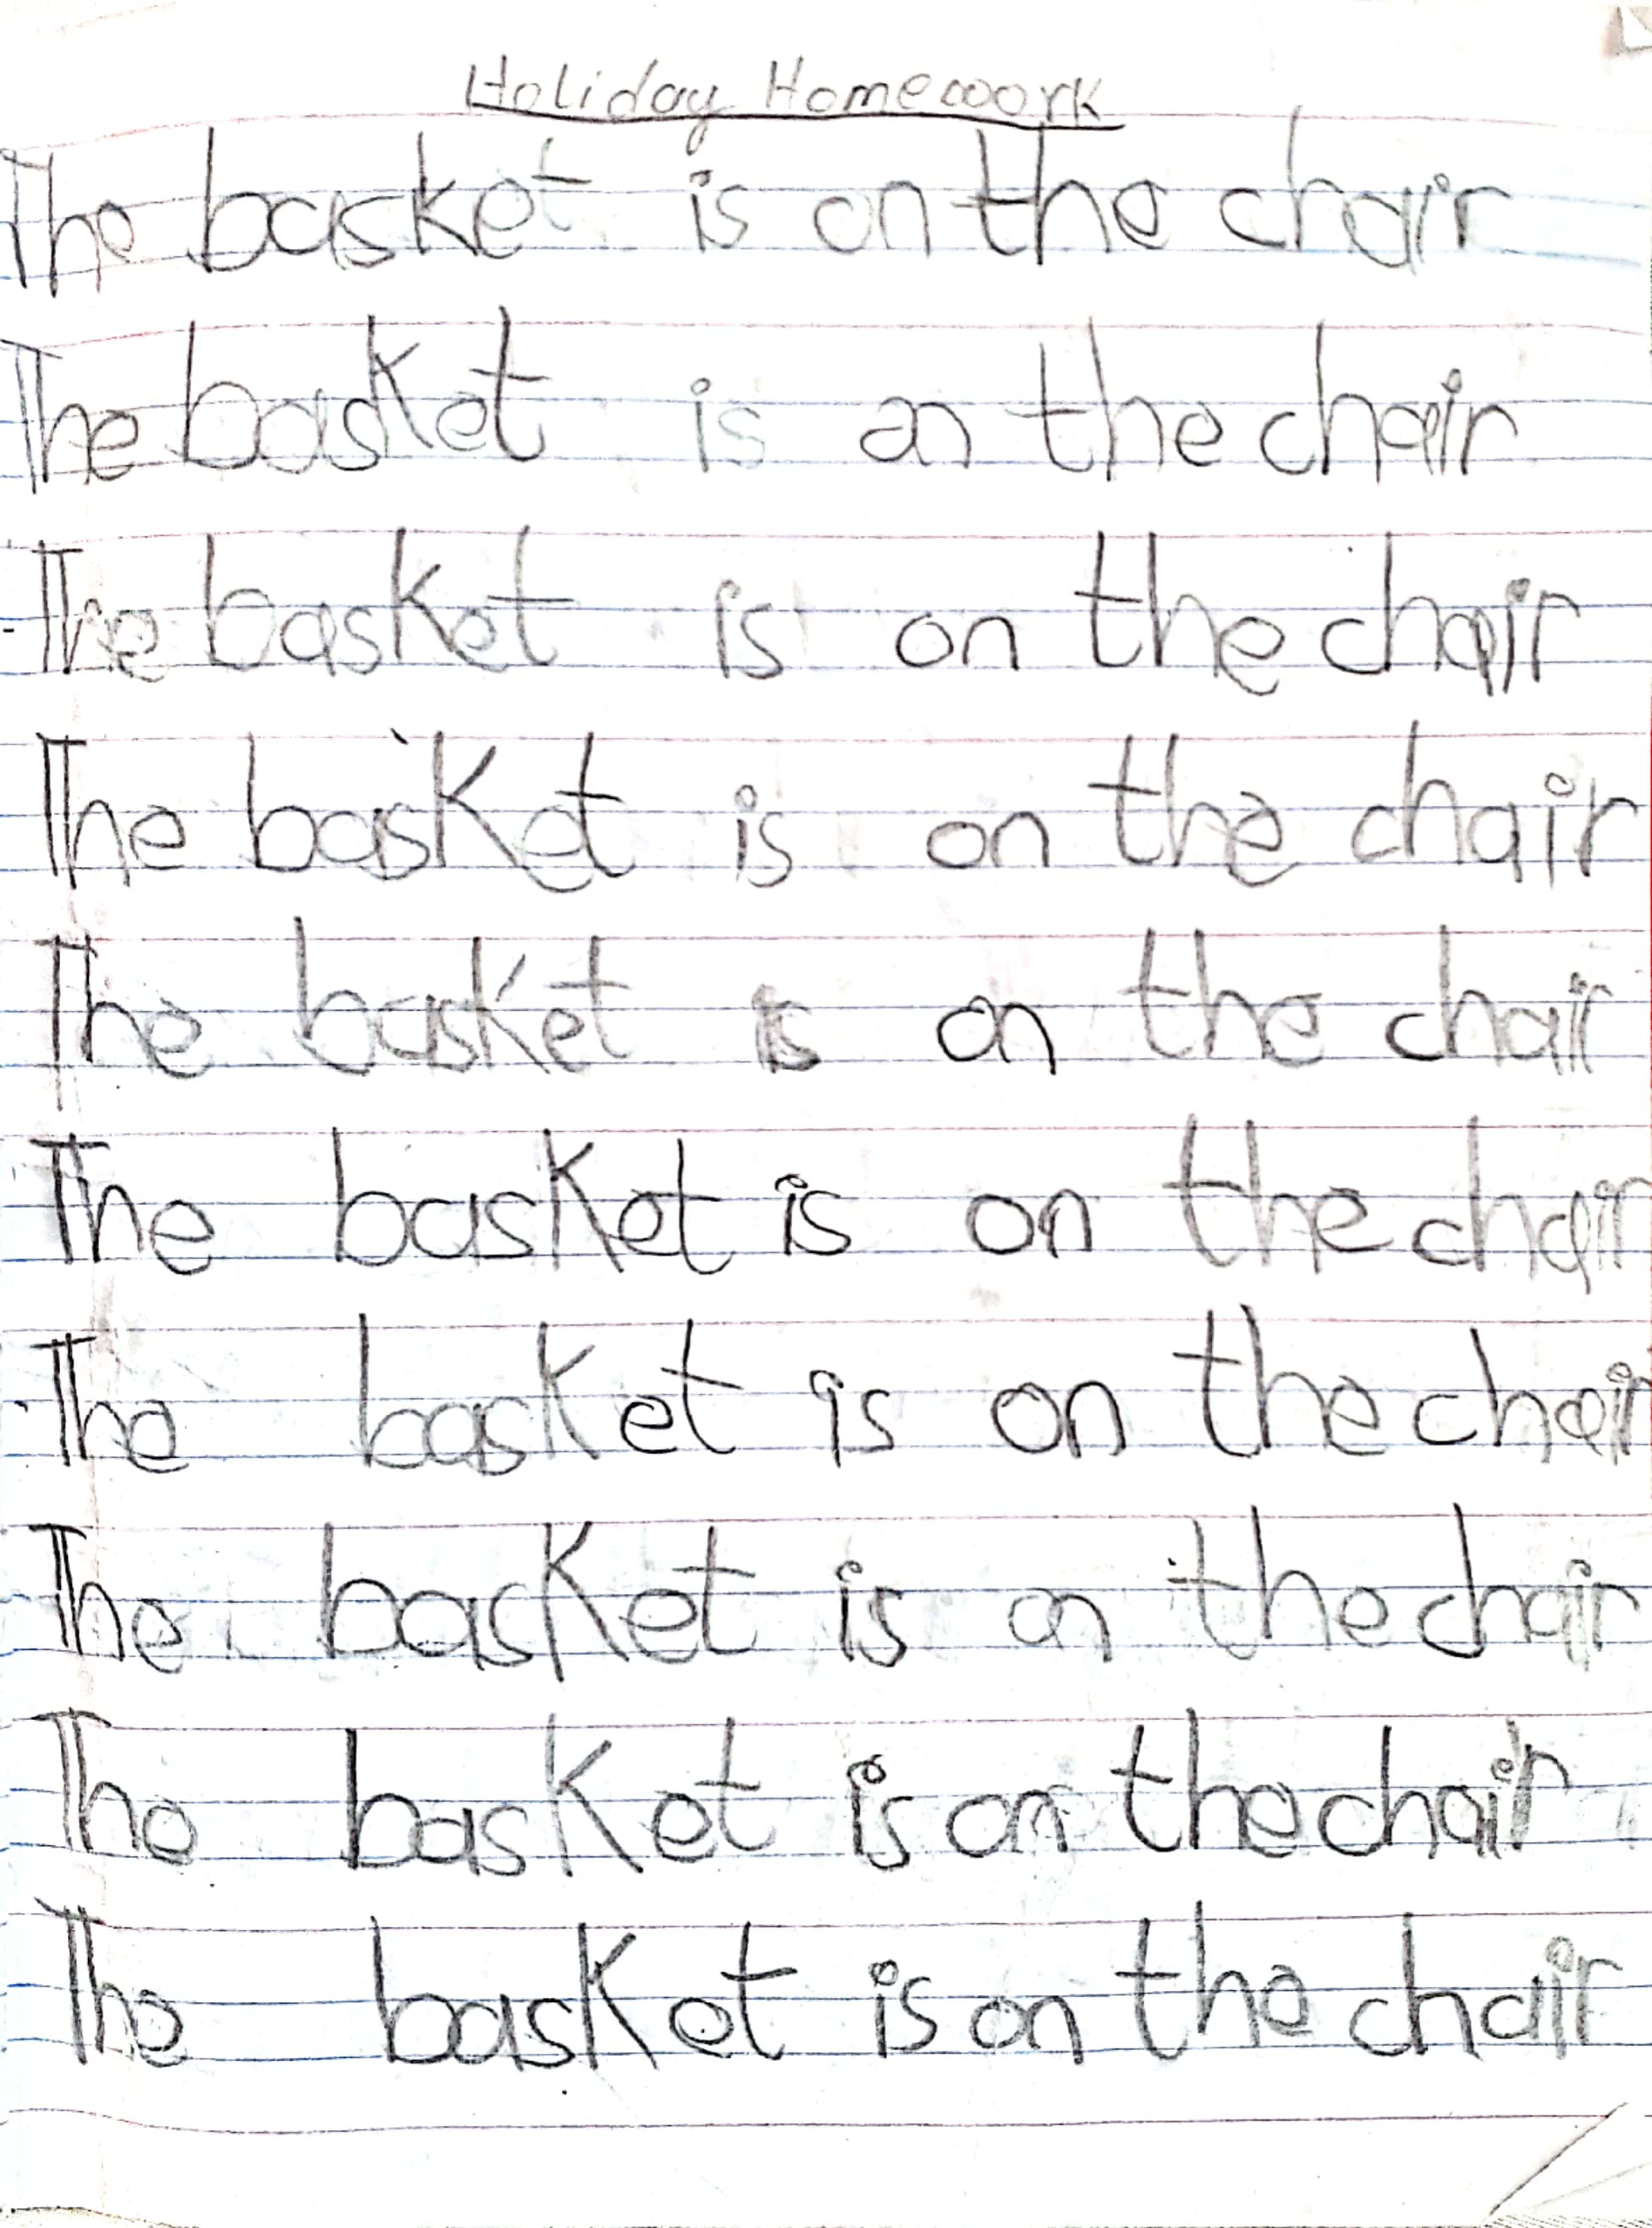 Holiday Homework
The basket is on the chair
The basket is on the chair
The basket is on the chair
The basket is on the chair
The basket is on the chair
The basket is on the chair
The basket is on the chair
The basket is on the chair
The basket is on the chair
The basket is on the chair